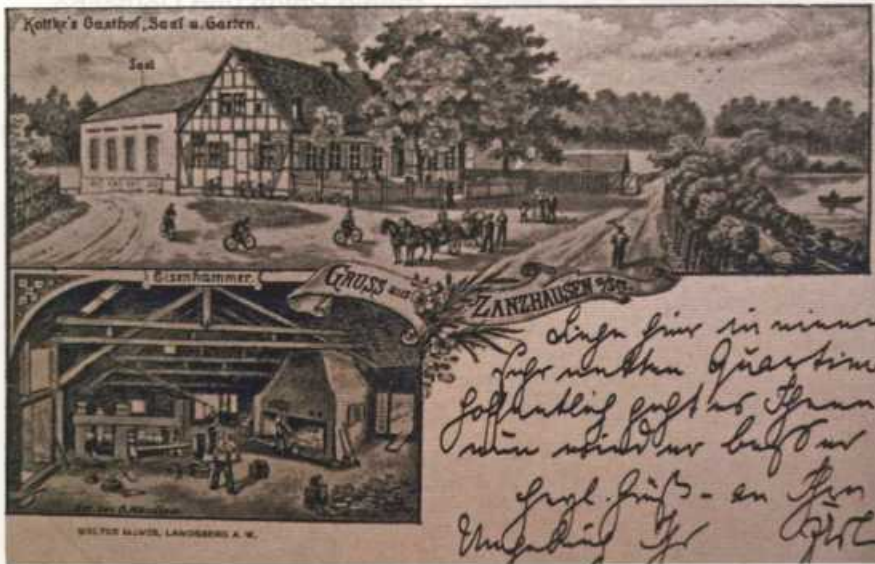 Kottke's Gasthof, Saal u. Garten.
Saal
Eisenhammer.
GRUSS aus
ZANZHAUSEN
LANDSBERG A. W.
Liege hier in einem
sehr netten Quartier
hoffentlich geht es Ihnen
nun wieder besser
Herzl. Grüß - an Ihre
Umgebung Ihr